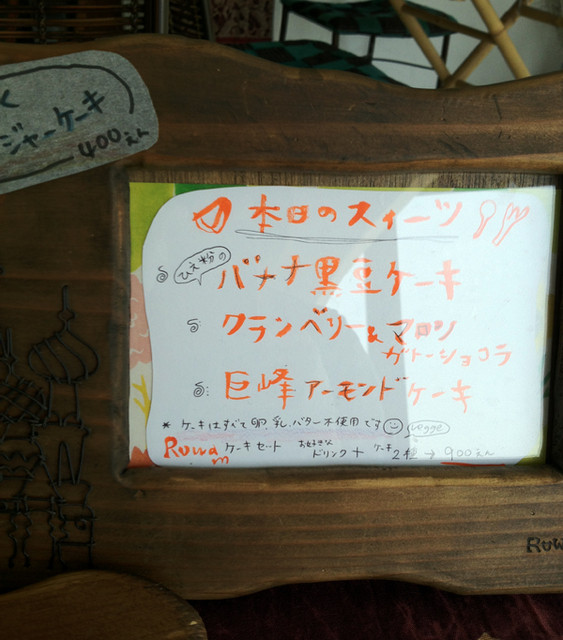 く
ジャーケーキ
400えん
本日のスイーツ
ひえ粉の
バナナ黒豆ケーキ
クランベリー&マロン
ガトーショコラ
巨峰アーモンドケーキ
* ケーキはすべて卵、乳、バター不使用です vegge
Rowan ケーキセット お好きなドリンク + ケーキ2種 → 900えん
Row